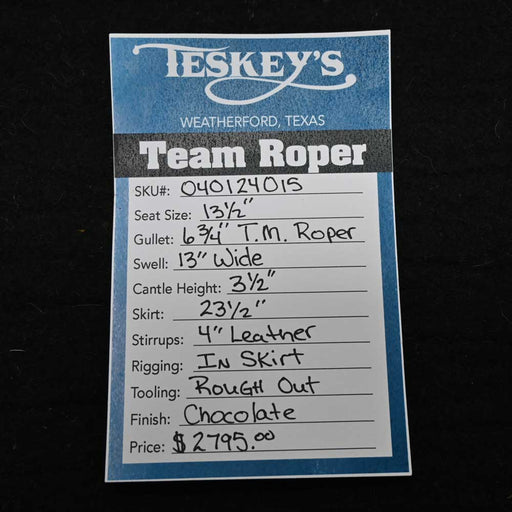 TESKEY'S
WEATHERFORD, TEXAS
Team Roper
SKU#: 040124015
Seat Size: 13½"
Gullet: 6¾" T.M. Roper
Swell: 13" Wide
Cantle Height: 3½"
Skirt: 23½"
Stirrups: 4" Leather
Rigging: IN SKirt
Tooling: RouGH Out
Finish: Chocolate
Price: $2795.00